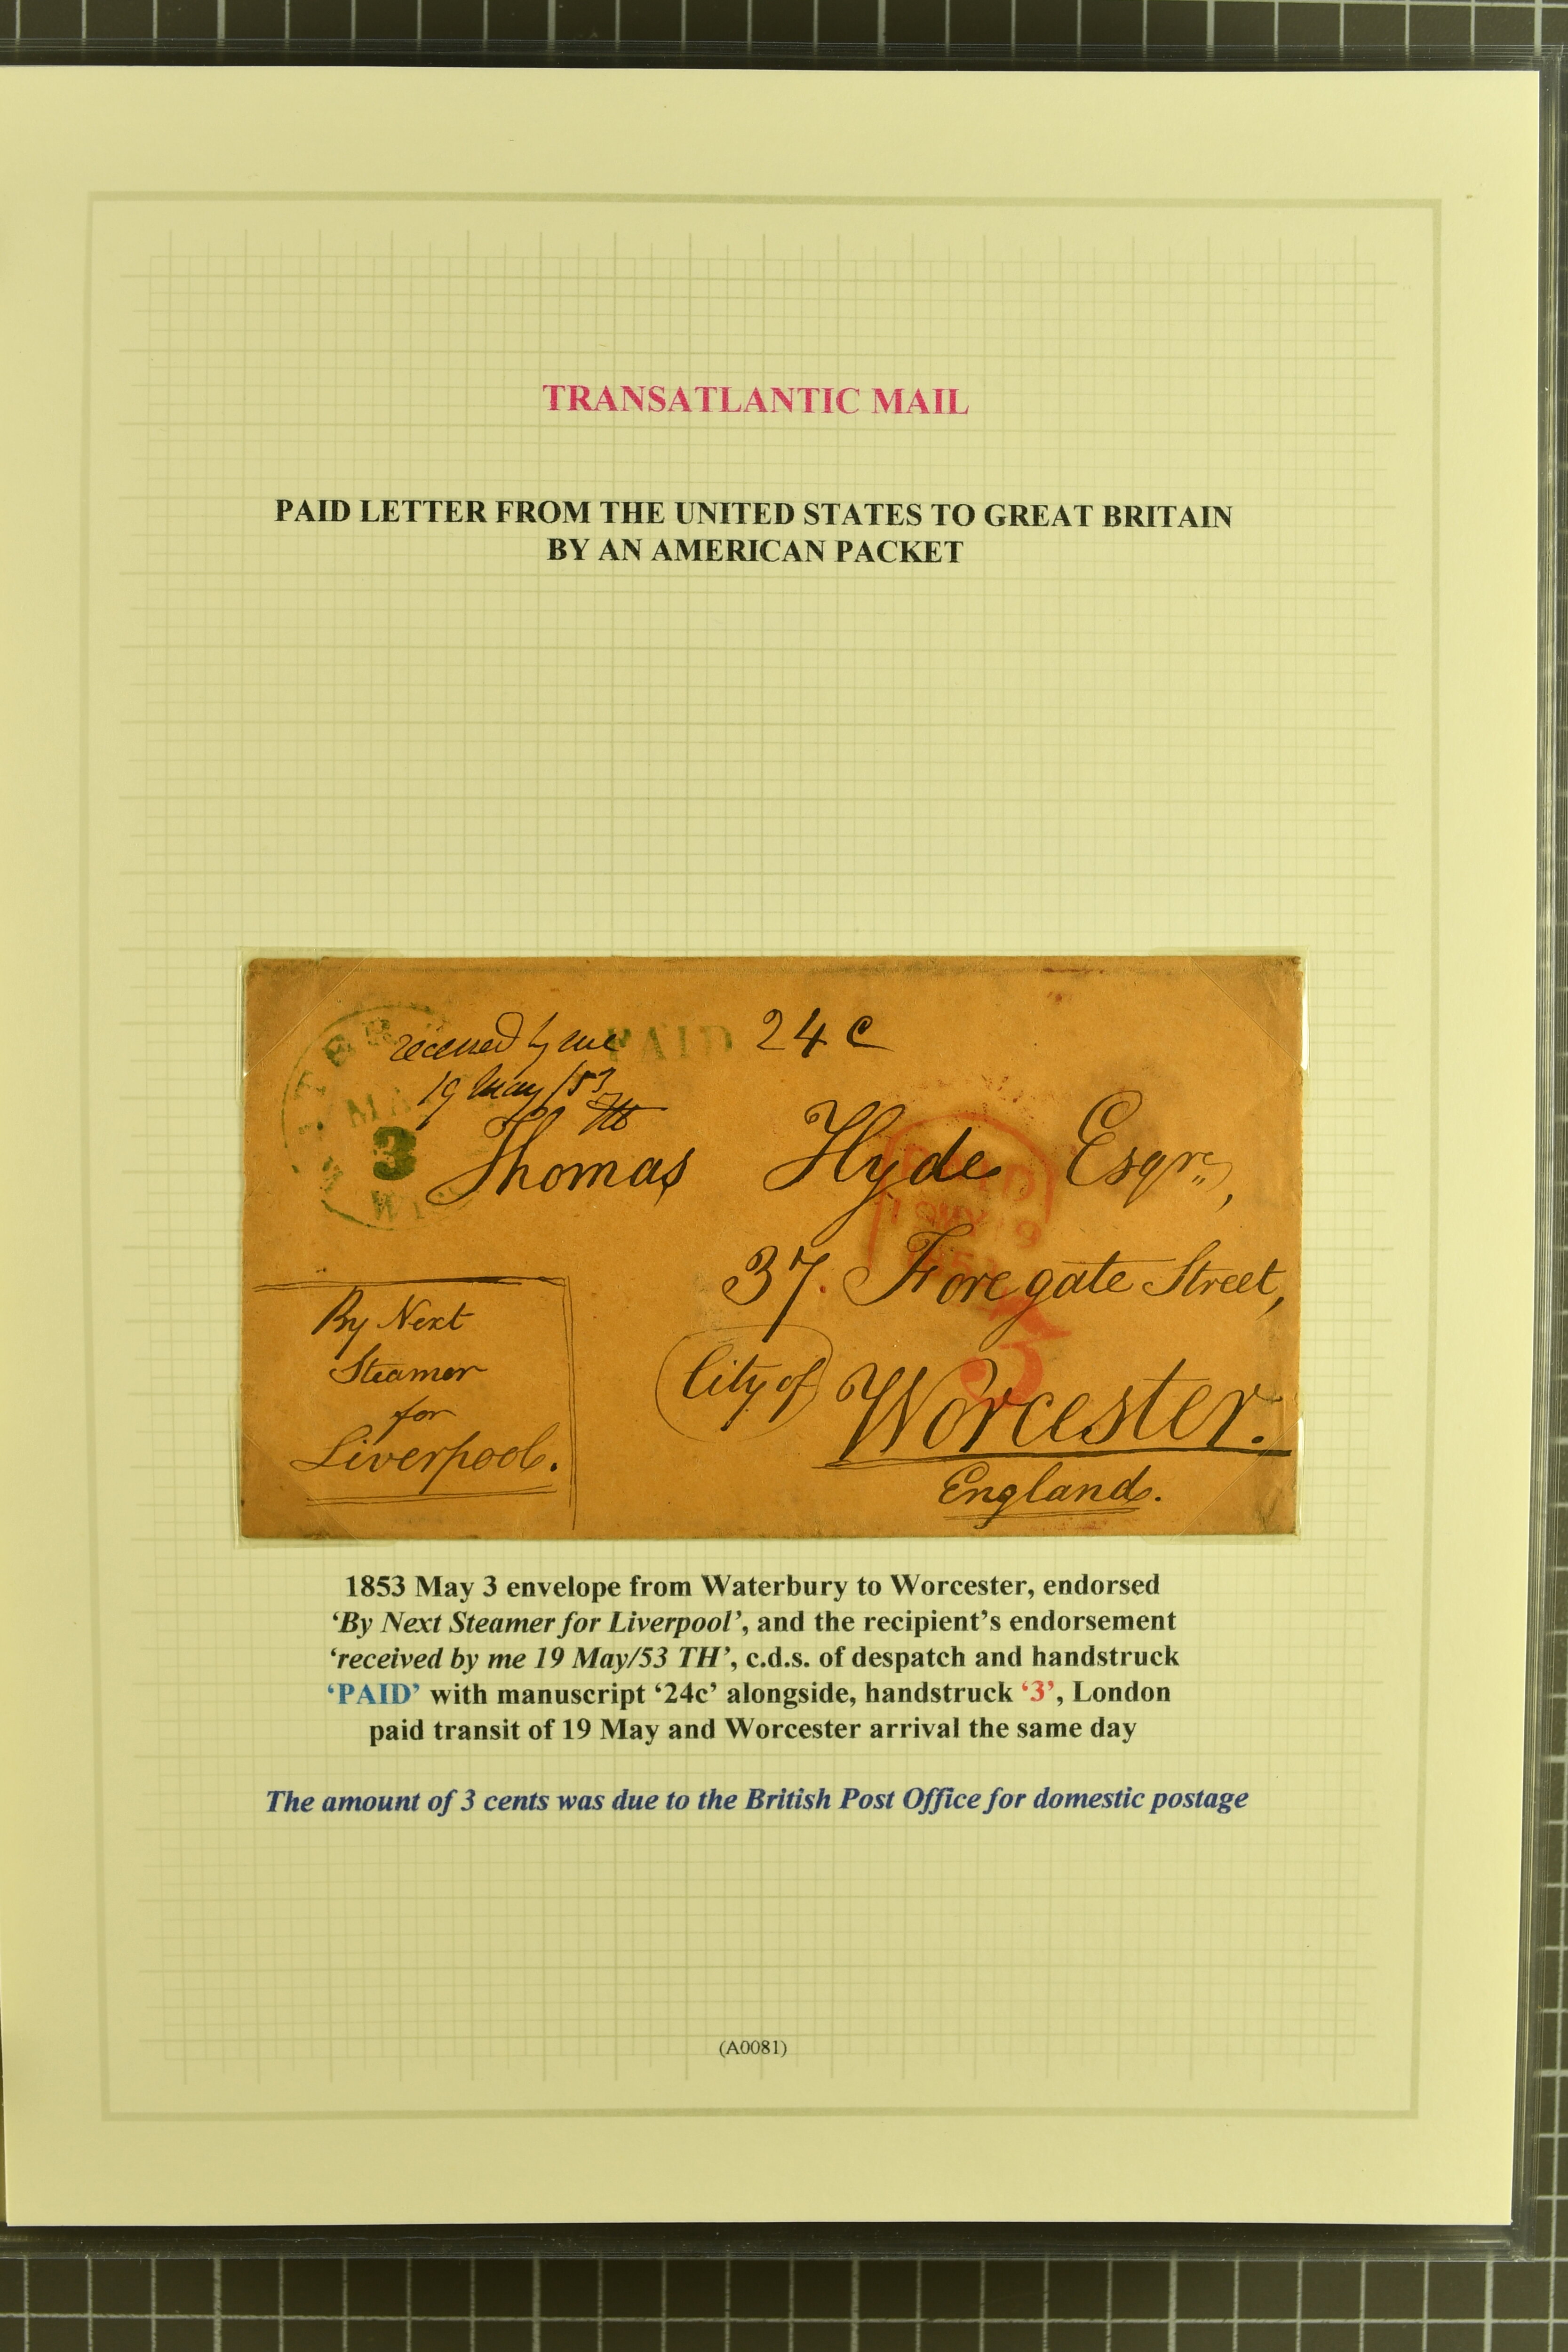 TRANSATLANTIC MAIL
PAID LETTER FROM THE UNITED STATES TO GREAT BRITAIN
BY AN AMERICAN PACKET
received by me
PAID
24 c
19 May /53
TH
MA
3
Thomas Hyde Esqre,
PAID
19 MY 19
37. Foregate Street,
3
City of Worcester.
England.
By Next
Steamer
for
Liverpool.
1853 May 3 envelope from Waterbury to Worcester, endorsed
‘By Next Steamer for Liverpool’, and the recipient’s endorsement
‘received by me 19 May/53 TH’, c.d.s. of despatch and handstruck
‘PAID’ with manuscript ‘24c’ alongside, handstruck ‘3’, London
paid transit of 19 May and Worcester arrival the same day
The amount of 3 cents was due to the British Post Office for domestic postage
(A0081)